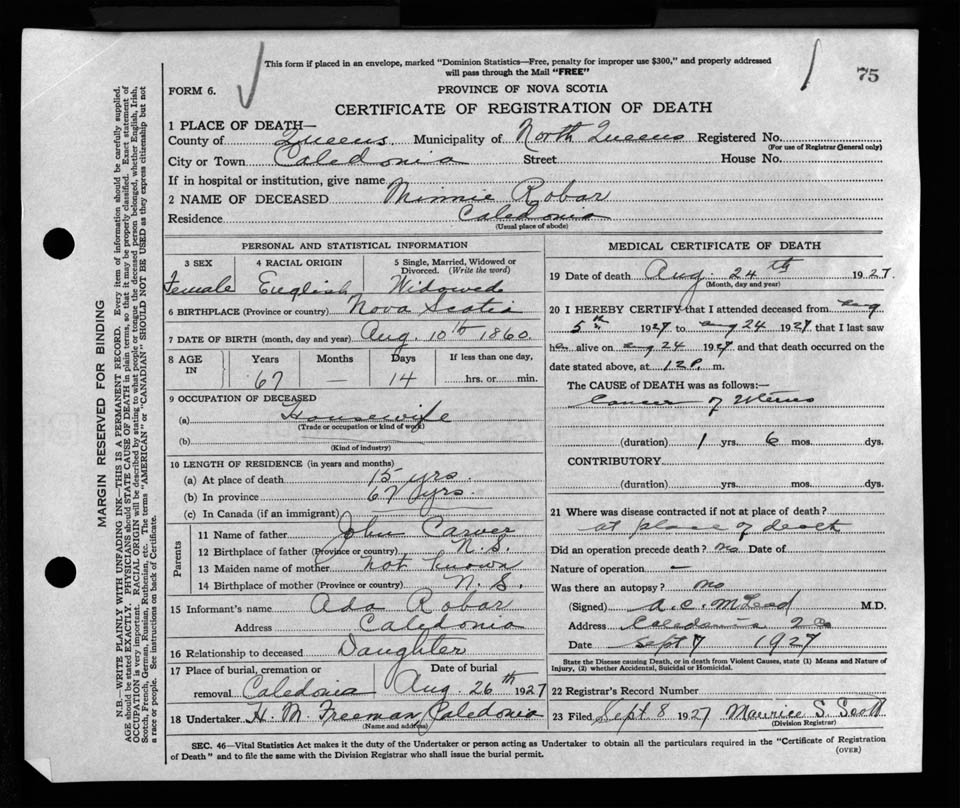 This form if placed in an envelope, marked "Dominion Statistics—Free, penalty for improper use $300," and properly addressed
will pass through the Mail "FREE"
75
FORM 6.
PROVINCE OF NOVA SCOTIA
CERTIFICATE OF REGISTRATION OF DEATH
1 PLACE OF DEATH—
County of Queens Municipality of North Queens Registered No.
(For use of Registrar General only)
City or Town Caledonia Street House No.
If in hospital or institution, give name
2 NAME OF DECEASED Minnie Robar
Residence Caledonia
(Usual place of abode)
PERSONAL AND STATISTICAL INFORMATION
3 SEX 4 RACIAL ORIGIN 5 Single, Married, Widowed or Divorced. (Write the word)
Female English Widowed
6 BIRTHPLACE (Province or country) Nova Scotia
7 DATE OF BIRTH (month, day and year) Aug. 10th 1860
8 AGE IN Years Months Days If less than one day,
67 — 14 hrs. or min.
9 OCCUPATION OF DECEASED
(a) Housewife
(Trade or occupation or kind of work)
(b)
(Kind of industry)
10 LENGTH OF RESIDENCE (in years and months)
(a) At place of death 15 yrs.
(b) In province 67 yrs.
(c) In Canada (if an immigrant)
Parents
11 Name of father John Carver
12 Birthplace of father (Province or country) N.S.
13 Maiden name of mother not known
14 Birthplace of mother (Province or country) N.S.
15 Informant's name Ada Robar
Address Caledonia
16 Relationship to deceased Daughter
17 Place of burial, cremation or Date of burial
removal Caledonia Aug. 26th 1927
18 Undertaker H. M. Freeman, Caledonia
(Name and address)
MEDICAL CERTIFICATE OF DEATH
19 Date of death Aug. 24th 1927.
(Month, day and year)
20 I HEREBY CERTIFY that I attended deceased from Aug
5th 1927 to Aug 24 1927 that I last saw
her alive on Aug 24 1927 and that death occurred on the
date stated above, at 12 P. m.
The CAUSE OF DEATH was as follows:—
Cancer of Uterus
(duration) 1 yrs. 6 mos. dys.
CONTRIBUTORY
(duration) yrs. mos. dys.
21 Where was disease contracted if not at place of death?
at place of death
Did an operation precede death? no Date of
Nature of operation —
Was there an autopsy? no
(Signed) A.C. McLeod M.D.
Address Caledonia
Date Sept 7 1927
State the Disease causing Death, or in death from Violent Causes, state (1) Means and Nature of
Injury, (2) whether Accidental, Suicidal or Homicidal.
22 Registrar's Record Number
23 Filed Sept 8 1927 Maurice S. Scott
(Division Registrar)
SEC. 46—Vital Statistics Act makes it the duty of the Undertaker or person acting as Undertaker to obtain all the particulars required in the "Certificate of Registration
of Death" and to file the same with the Division Registrar who shall issue the burial permit.
(OVER)
MARGIN RESERVED FOR BINDING
N.B.—WRITE PLAINLY WITH UNFADING INK—THIS IS A PERMANENT RECORD. Every item of information should be carefully supplied.
AGE should be stated EXACTLY. PHYSICIANS should STATE CAUSE OF DEATH in plain terms, so that it may be properly classified. Exact statement of
OCCUPATION is very important. RACIAL ORIGIN will be described by stating to what people or tongue the deceased person belonged, whether English, Irish,
Scotch, French, German, Russian, Ruthenian, etc. The terms "AMERICAN" or "CANADIAN" SHOULD NOT BE USED as they express citizenship but not
a race or people. See instructions on back of Certificate.